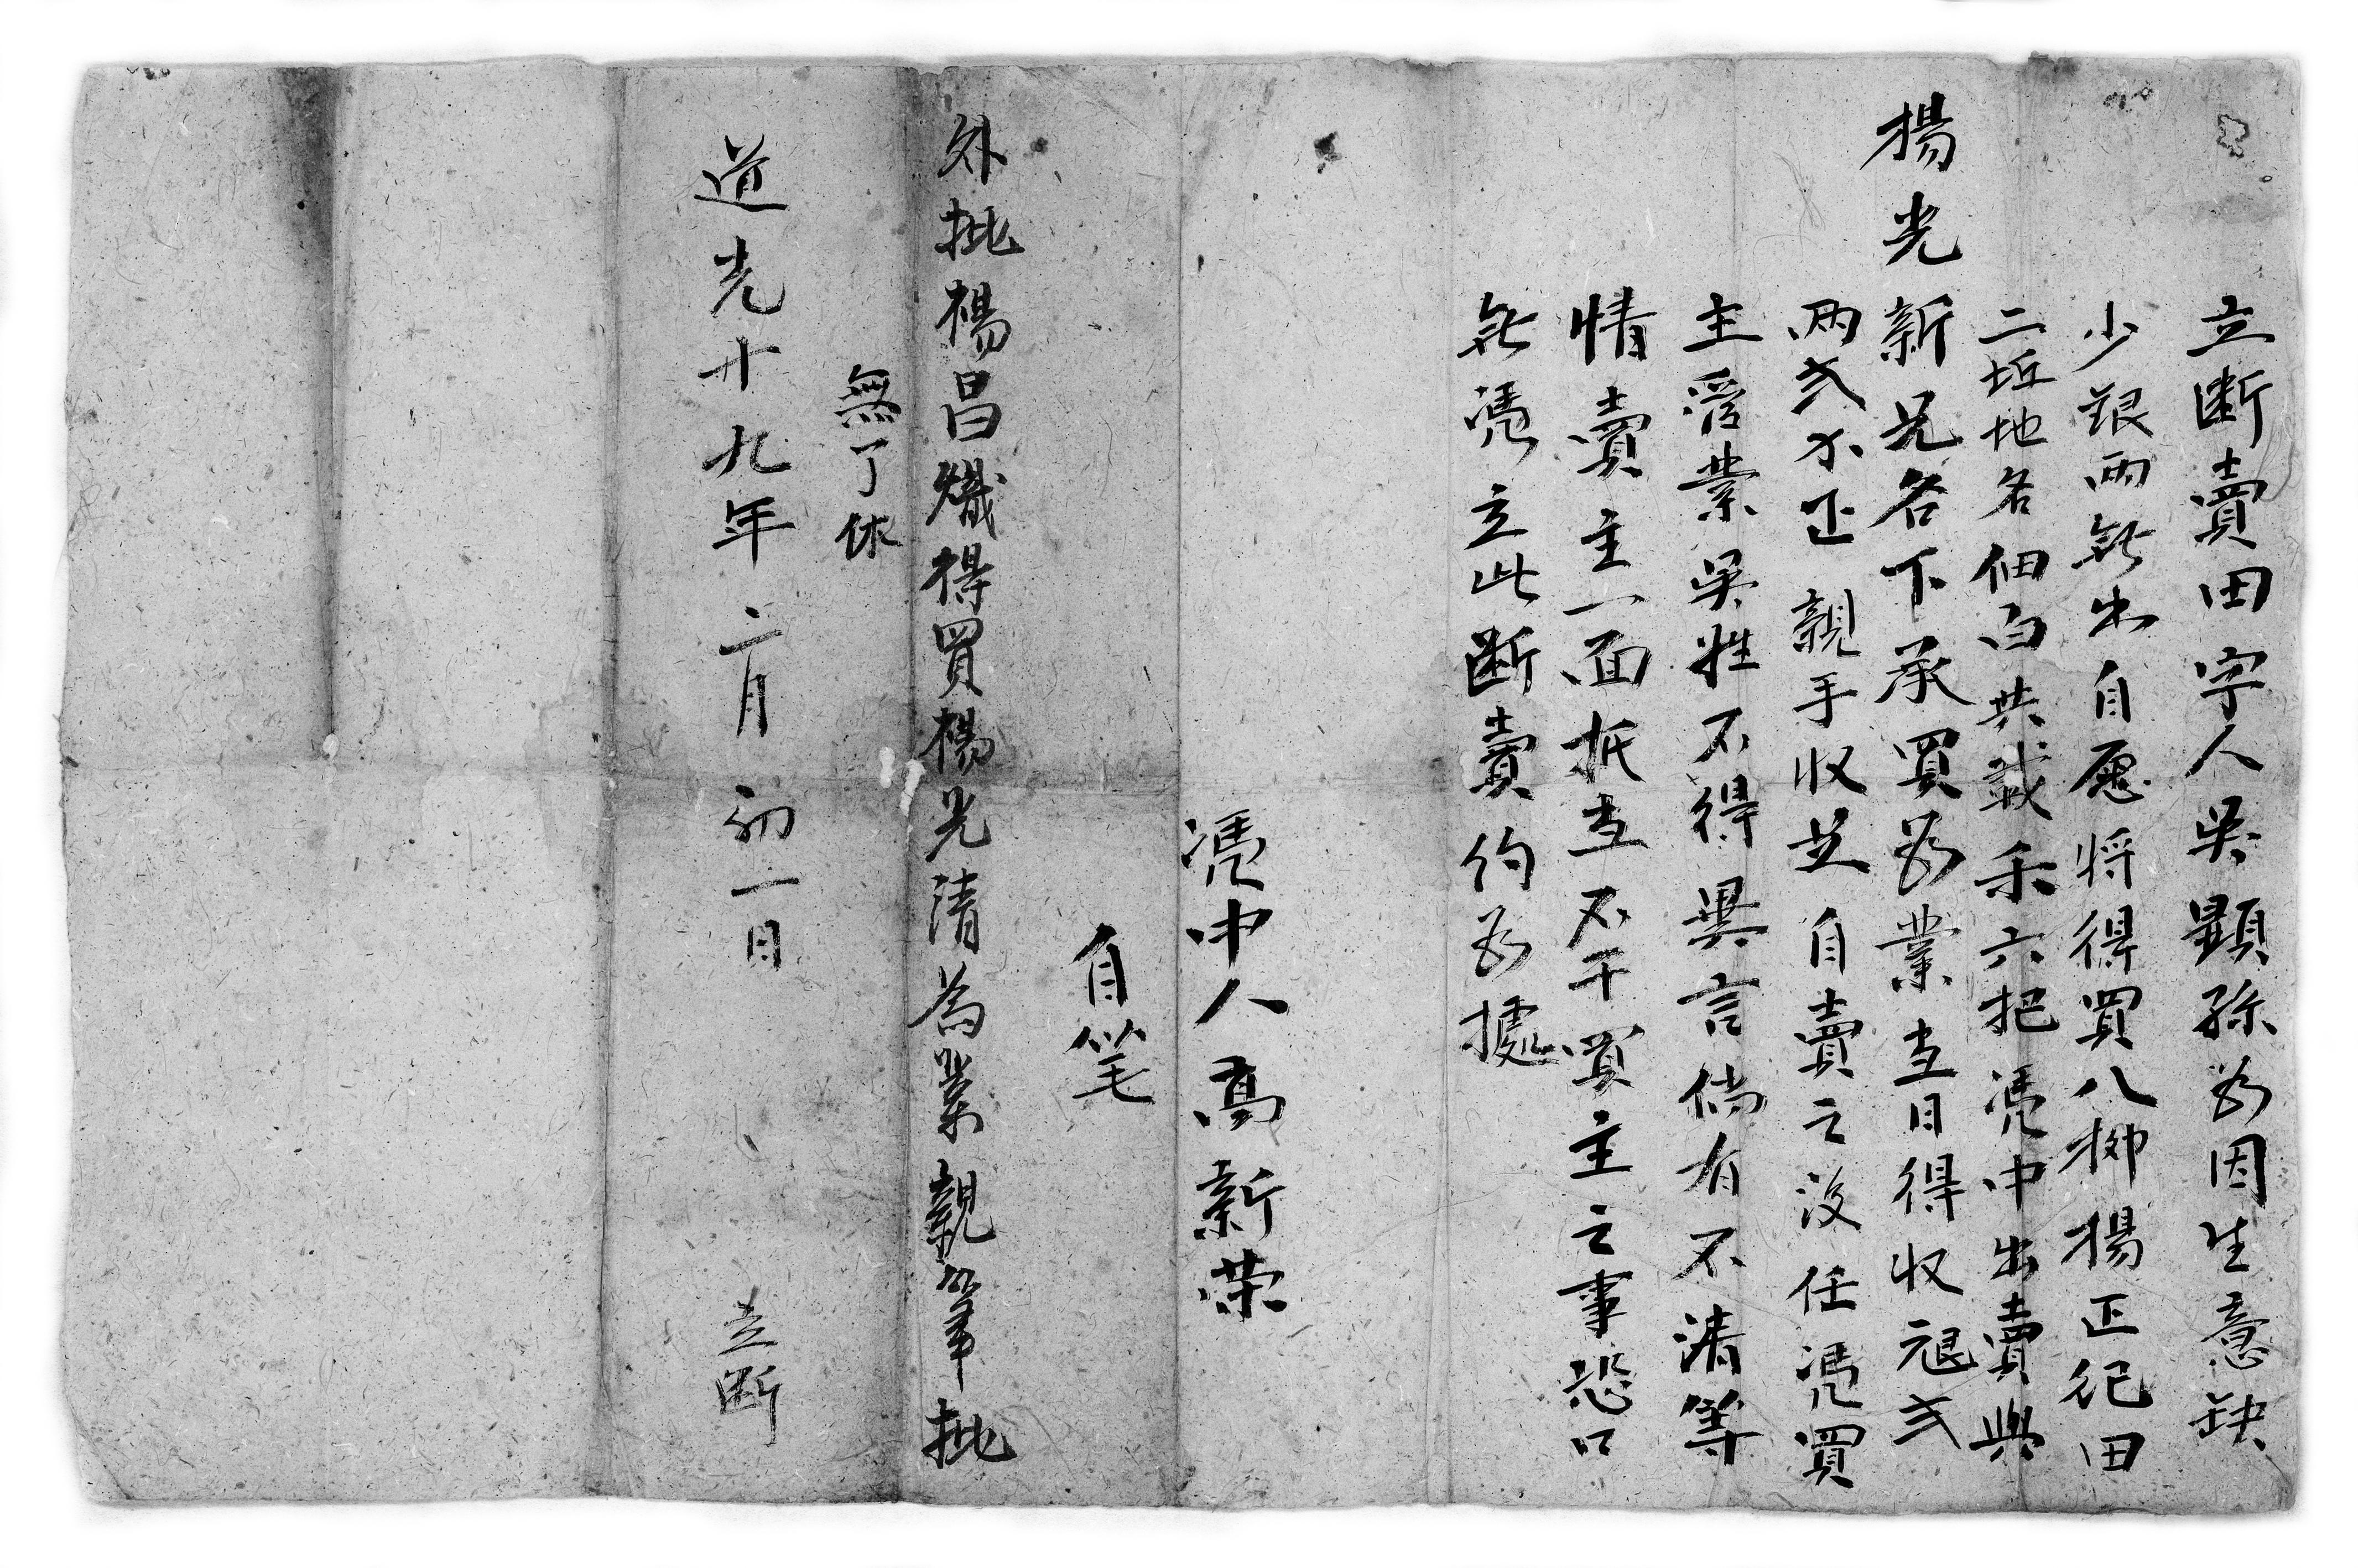 立断賣田字人吳顕孫为因生意缺
少艮両無出自愿将得買八抑楊正紀田
二坵地名佃白共載禾六把憑中出賣與
楊光新兄名下承買为業当日得收艮弍
両弍不正親手收足自賣之後任憑買
主管業吳姓不得異言倘有不清等
情賣主一面抵当不干買主之事恐口
無憑立此断賣約为據
憑中人高新荣
自笔
外批楊昌熾得買楊光清為業親筆批
無了休
道光十九年二月初一日 立断